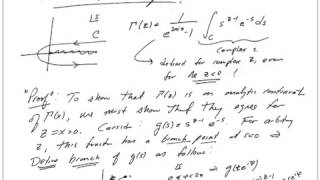 LS
C
Γ(z) = 1 / (e^{2πiz} - 1) ∫_C s^{z-1} e^{-s} ds
complex z
defined for complex z, even
for Re z<0 !
"Proof": To show that Γ(z) is an analytic continuation
of Γ(z), we must show that they agree for
z = x>0. Consider: g(s) = s^{z-1} e^{-s}. For arbitrary
z, this function has a branch point at s=0 ⇒
Define branch of g(s) as follows: